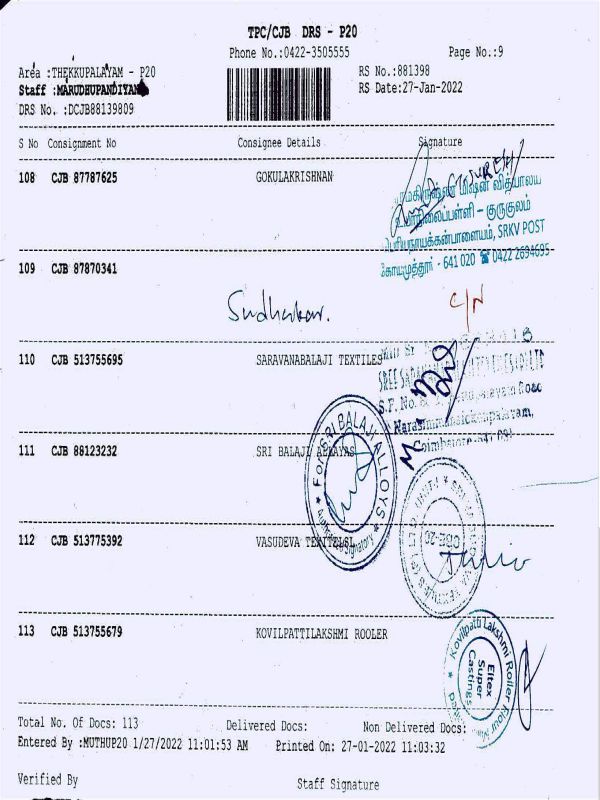 TPC/CJB DRS - P20
Phone No.:0422-3505555 Page No.:9
Area :THEKKUPALAYAM - P20 RS No.:881398
Staff :MARUDHUPANDIYAN RS Date:27-Jan-2022
DRS No. :DCJB88139809
S No Consignment No Consignee Details Signature
108 CJB 87787625 GOKULAKRISHNAN
மிஷன் வித்யாலய
குருகுலம்
SRKV POST
கோயமுத்தூர் - 641 020 ☎ 0422 2694695
109 CJB 87870341
Sudhakar. C/N
110 CJB 513755695 SARAVANABALAJI TEXTILES
S.F. No.
Coimbatore
111 CJB 88123232 SRI BALAJI ALLAYAS
For SRI BALAJI ALLOYS
Authorised Signatory
112 CJB 513775392 VASUDEVA TEXITELSL
CBE-20
113 CJB 513755679 KOVILPATTILAKSHMI ROOLER
Kovilpatti Lakshmi Roller Flour
Eltex
Super
Castings
Total No. Of Docs: 113 Delivered Docs: Non Delivered Docs:
Entered By :MUTHUP20 1/27/2022 11:01:53 AM Printed On: 27-01-2022 11:03:32
Verified By Staff Signature